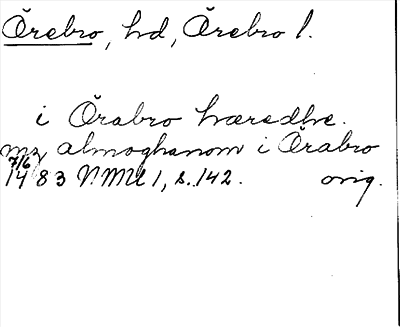 Örebro, hd, Örebro l.
i Örabro hæredhe.
mz almoghanom i Örabro
7/6
1483 NMU 1, s. 142. orig.